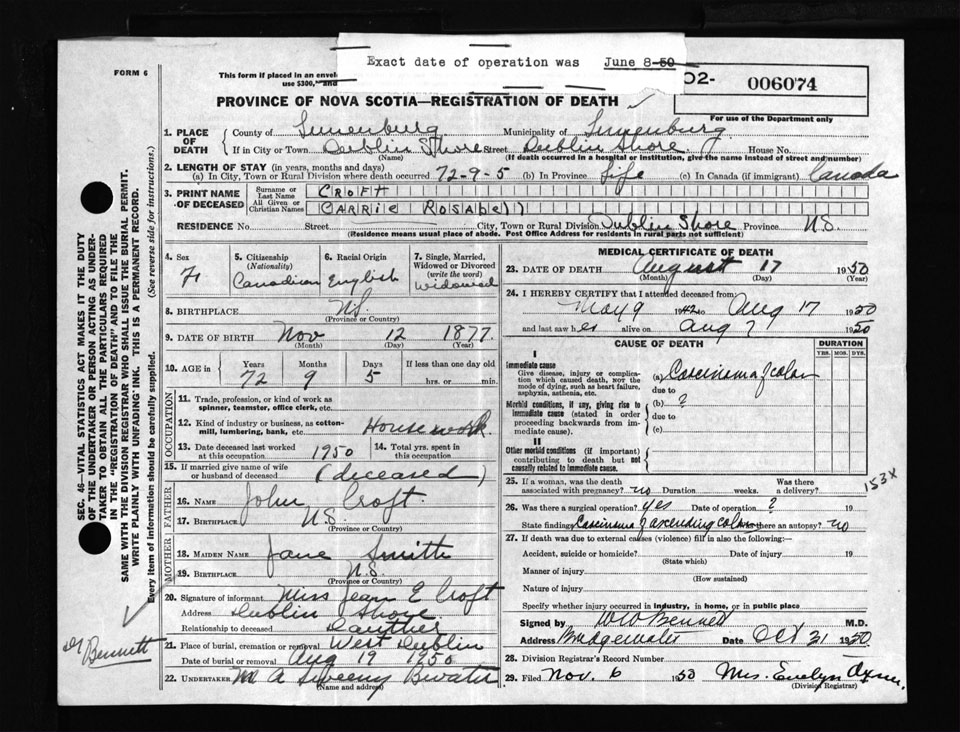 Exact date of operation was June 8-50
FORM 6
This form if placed in an envel
use $300, and
02-
006074
PROVINCE OF NOVA SCOTIA—REGISTRATION OF DEATH
For use of the Department only
1. PLACE OF DEATH
County of Lunenburg Municipality of Lunenburg
If in City or Town Dublin Shore Street Dublin Shore House No.
(Name) (If death occurred in a hospital or institution, give the name instead of street and number)
2. LENGTH OF STAY (in years, months and days)
(a) In City, Town or Rural Division where death occurred 72-9-5 (b) In Province Life (c) In Canada (if immigrant) Canada
3. PRINT NAME OF DECEASED
Surname or Last Name CROFT
All Given or Christian Names CARRIE ROSABELL
RESIDENCE No. Street City, Town or Rural Division Dublin Shore Province N.S.
(Residence means usual place of abode. Post Office Address for residents in rural parts not sufficient)
4. Sex F
5. Citizenship (Nationality) Canadian
6. Racial Origin English
7. Single, Married, Widowed or Divorced (write the word) Widowed
8. BIRTHPLACE N.S.
(Province or Country)
9. DATE OF BIRTH Nov 12 1877
(Month) (Day) (Year)
10. AGE in Years Months Days If less than one day old
72 9 5 hrs. or min.
OCCUPATION
11. Trade, profession, or kind of work as spinner, teamster, office clerk, etc.
12. Kind of industry or business, as cotton-mill, lumbering, bank, etc. Housework
13. Date deceased last worked at this occupation 1950
14. Total yrs. spent in this occupation
15. If married give name of wife or husband of deceased (deceased)
FATHER
16. NAME John Croft
17. BIRTHPLACE N.S
(Province or Country)
MOTHER
18. MAIDEN NAME Jane Smith
19. BIRTHPLACE N.S.
(Province or Country)
20. Signature of informant Miss Jean E Croft
Address Dublin Shore
Relationship to deceased Dauther
21. Place of burial, cremation or removal West Dublin
Date of burial or removal Aug 19 1950
22. UNDERTAKER M A Sweeny Bwater
(Name and address)
MEDICAL CERTIFICATE OF DEATH
23. DATE OF DEATH August 17 1950
(Month) (Day) (Year)
24. I HEREBY CERTIFY that I attended deceased from:
May 9 19 to Aug 17 1950
and last saw her alive on Aug 7 1950
CAUSE OF DEATH DURATION
YRS. MOS. DYS.
I
Immediate cause
Give disease, injury or complication which caused death, NOT the mode of dying, such as heart failure, asphyxia, asthenia, etc.
(a) Carcinoma of colon
due to
Morbid conditions, if any, giving rise to immediate cause (stated in order proceeding backwards from immediate cause).
(b) ?
due to
(c)
II
Other morbid conditions (if important) contributing to death but not causally related to immediate cause.
25. If a woman, was the death associated with pregnancy? no Duration weeks. Was there a delivery?
153X
26. Was there a surgical operation? yes Date of operation ? 19
State findings Carcinoma of ascending colon Was there an autopsy? no
27. If death was due to external causes (violence) fill in also the following:—
Accident, suicide or homicide? Date of injury 19
(State which)
Manner of injury
(How sustained)
Nature of injury
Specify whether injury occurred in industry, in home, or in public place
Signed by W W Bennett M.D.
Address Bridgewater Date Oct 31 1950
28. Division Registrar's Record Number
29. Filed Nov. 6 1950 Mrs. Evelyn
(Division Registrar)
SEC. 46—VITAL STATISTICS ACT MAKES IT THE DUTY
OF THE UNDERTAKER OR PERSON ACTING AS UNDER-
TAKER TO OBTAIN ALL THE PARTICULARS REQUIRED
IN THE "REGISTRATION OF DEATH" AND TO FILE THE
SAME WITH THE DIVISION REGISTRAR WHO SHALL ISSUE THE BURIAL PERMIT.
WRITE PLAINLY WITH UNFADING INK. THIS IS A PERMANENT RECORD.
Every item of information should be carefully supplied. (See reverse side for instructions.)
Dr Bennett